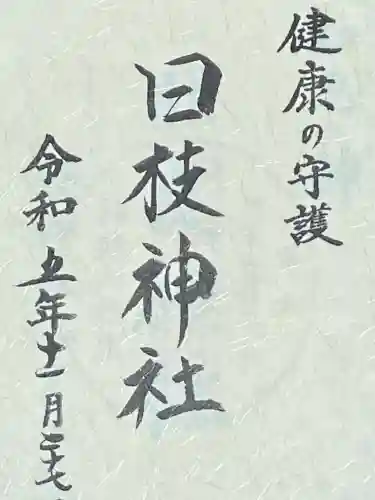 健康の守護
日枝神社
令和五年十一月二十七